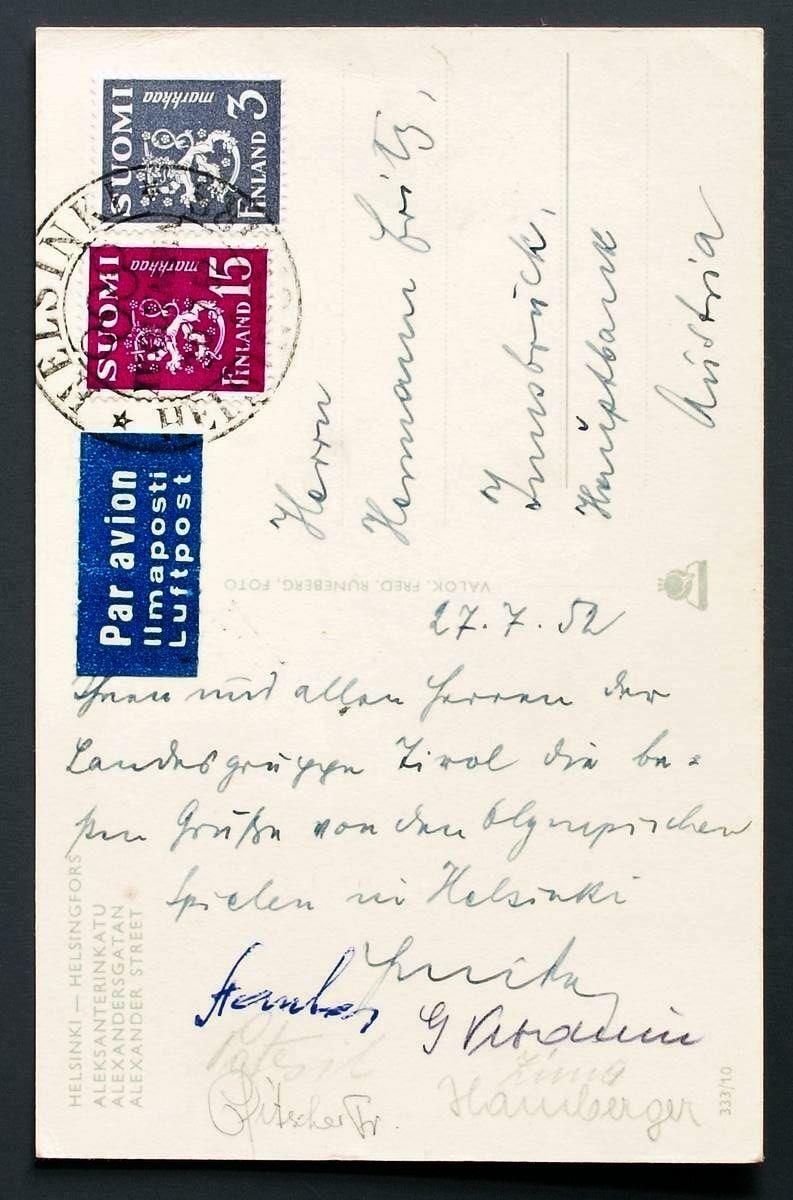 SUOMI
markkaa
3
FINLAND
SUOMI
markkaa
15
FINLAND
HELSINKI
Par avion
Ilmaposti
Luftpost
Herrn
Hermann Fritz,
Innsbruck,
Hauptbank
Austria
VALOK. FRED. RUNEBERG, FOTO
27.7.52
Ihnen und allen Herren der
Landesgruppe Tirol die be=
sten Grüße von den Olympischen
Spielen in Helsinki
Zima
Pitscher Fr.
Hamberger
HELSINKI — HELSINGFORS
ALEKSANTERINKATU
ALEXANDERSGATAN
ALEXANDER STREET
333/10